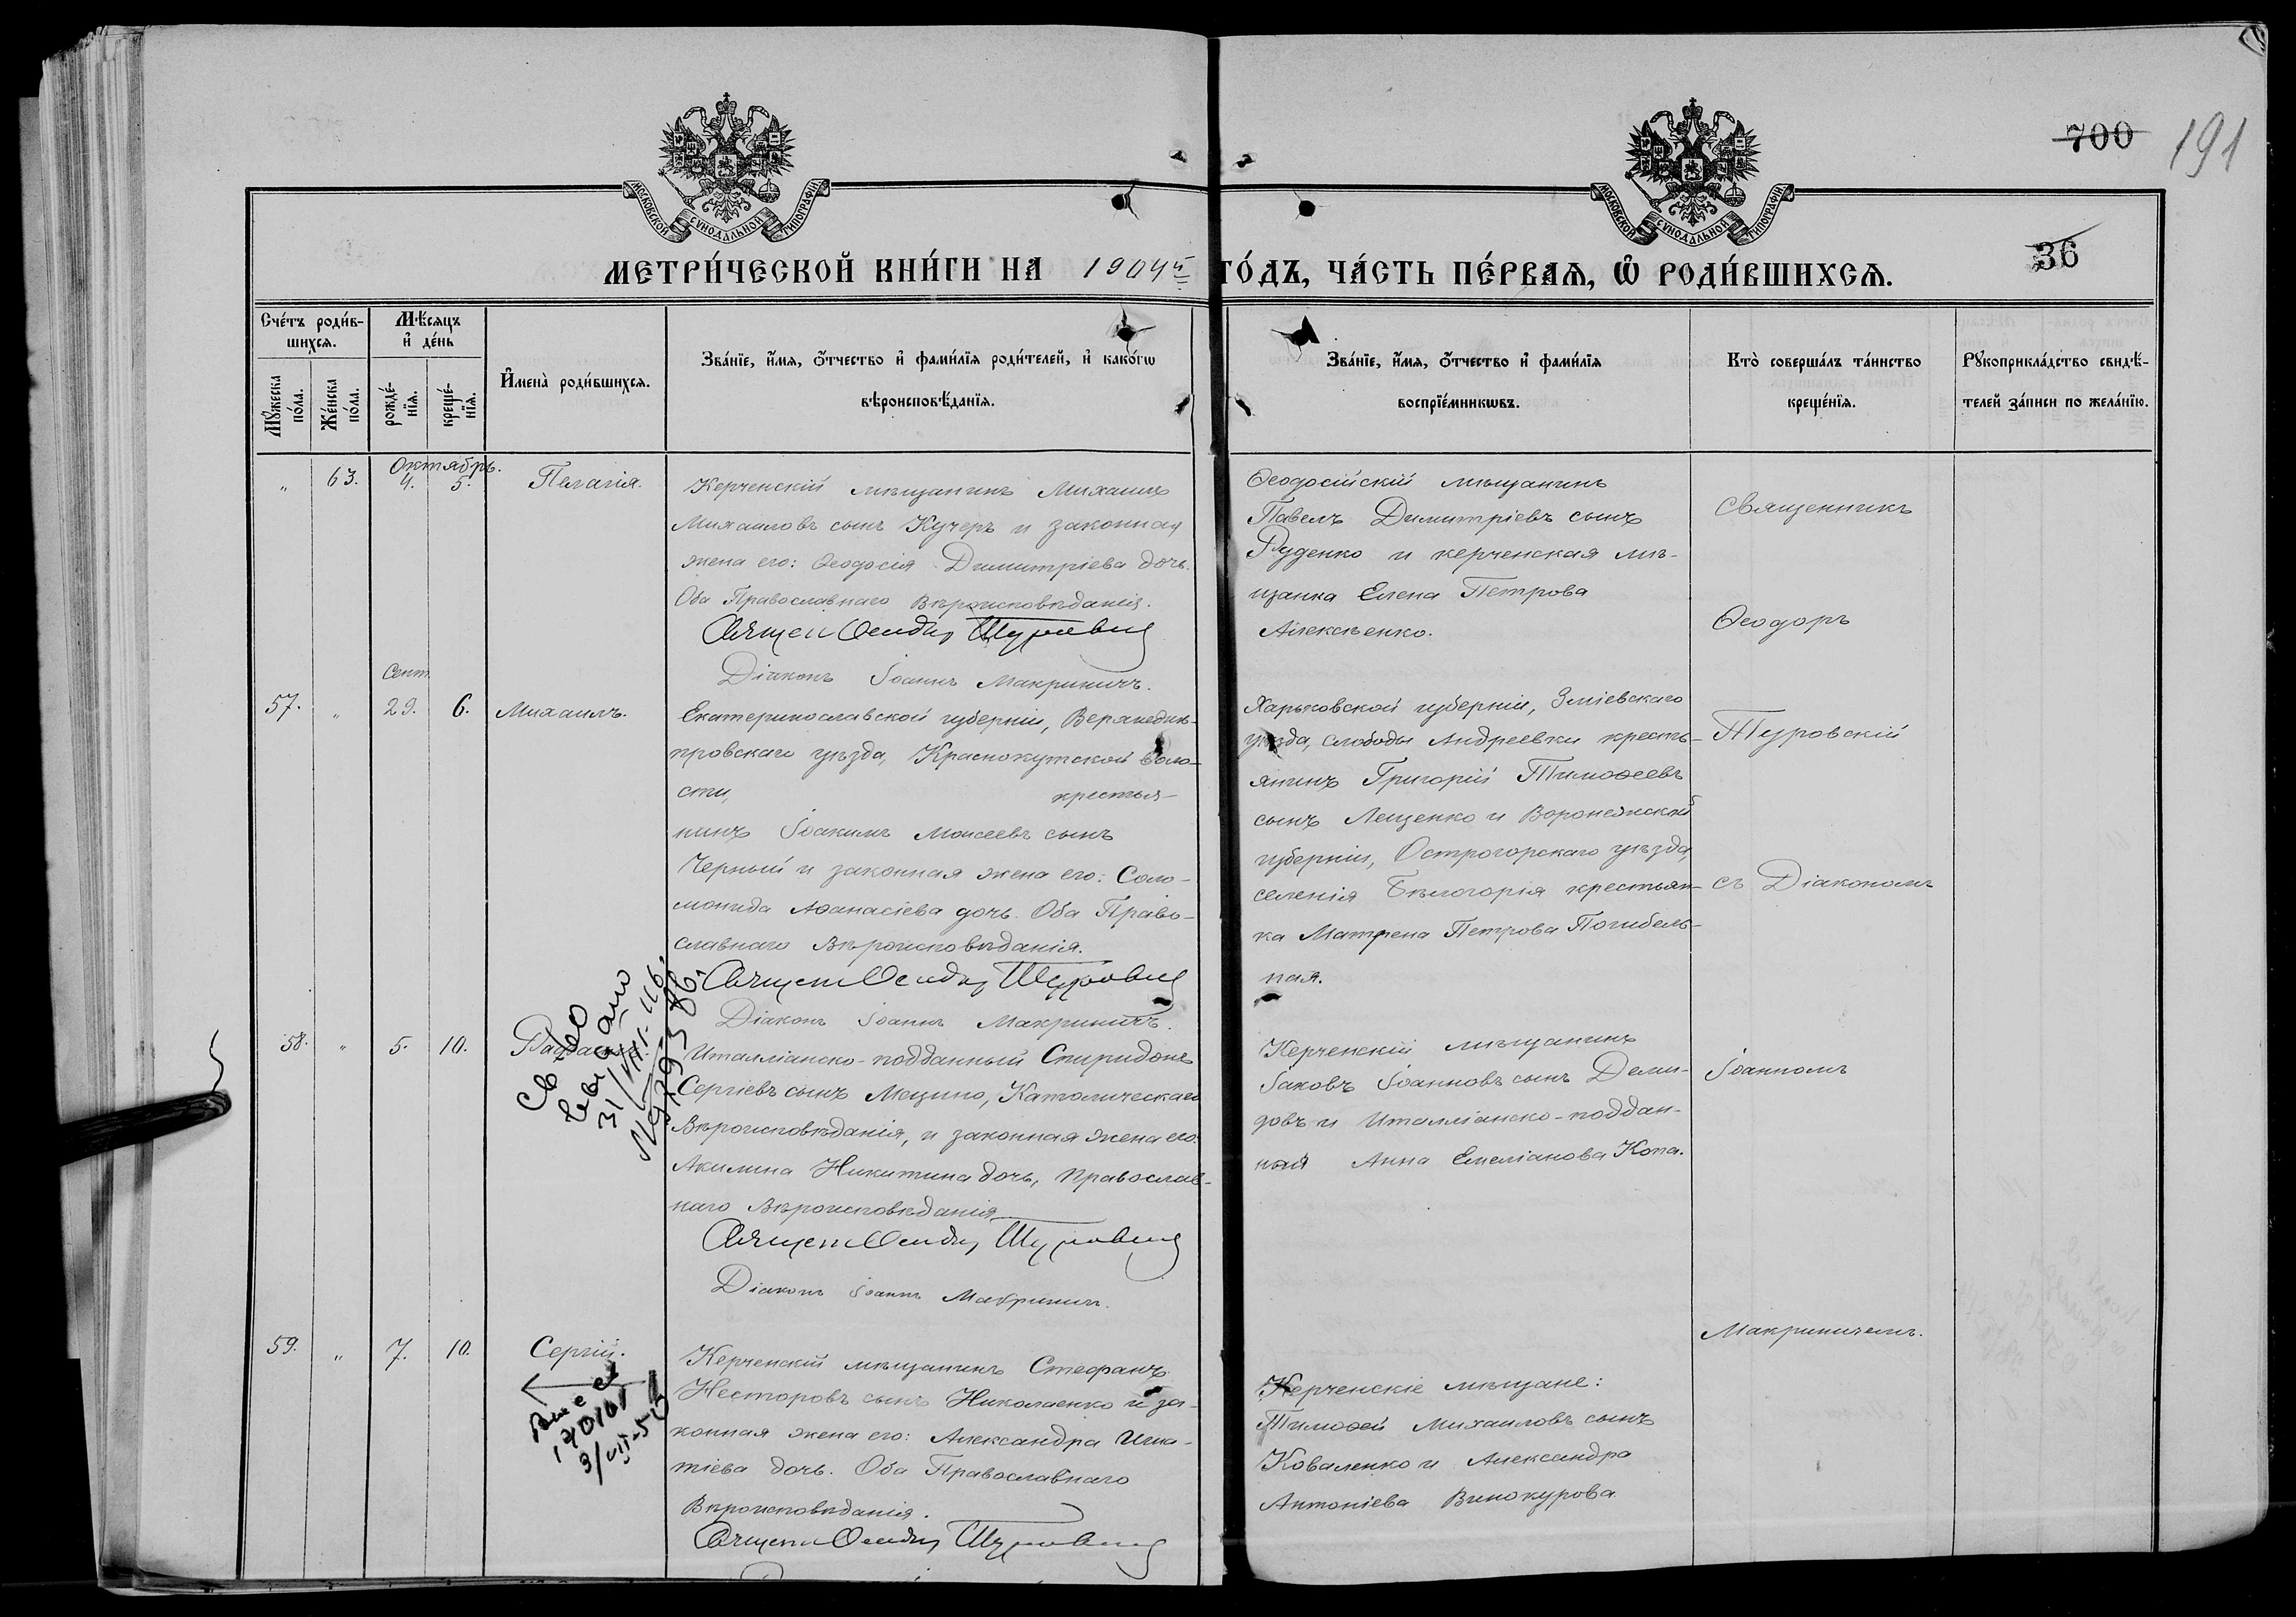 700
191
МОСКОВСКОЙ СѴНОДАЛЬНОЙ ТИПОГРАФІИ
МОСКОВСКОЙ СѴНОДАЛЬНОЙ ТИПОГРАФІИ
36
МЕТРИ́ЧЕСКОЙ КНИ́ГИ НА 1904й ГО́ДЪ, ЧА́СТЬ ПЕ́РВАѦ, Ѡ҆ РОДИ́ВШИХСѦ.
Сче́тъ роди́в-
шихсѧ.
Мꙋ́жеска по́ла.
Же́нска по́ла.
Мѣ́сѧцъ
и҆ де́нь
рожде́-
нїѧ.
креще́-
нїѧ.
И҆мена̀ роди́вшихсѧ.
Зва́нїе, и҆́мѧ, ѻ҆́тчество и҆ фами́лїѧ роди́телей, и҆ како́гѡ
вѣроисповѣ́данїѧ.
Зва́нїе, и҆́мѧ, ѻ҆́тчество и҆ фами́лїѧ
воспрїе́мникѡвъ.
Кто̀ соверша́лъ та́инство
креще́нїѧ.
Рꙋкоприкла́дство свидѣ́-
телей за́писи по жела́нїю.
Октябрь.
" 63. 4. 5. Пелагія.
Керченскій мѣщанинъ Михаилъ
Михаиловъ сынъ Кучеръ и законная
жена его: Ѳеодосія Димитріева дочь.
Оба Православнаго Вѣроисповѣданія.
Священ Ѳеодор Туровский
Діаконъ Іоаннъ Макриничъ.
Ѳеодосійскій мѣщанинъ
Павелъ Димитріевъ сынъ
Руденко и керченская мѣ-
щанка Елена Петрова
Алексѣенко.
Священникъ
Ѳеодоръ
Сент.
57. " 29. 6. Михаилъ.
Екатеринославской губерніи, Верхнеднѣ-
провскаго уѣзда, Краснокутской воло-
сти, крестья-
нинъ Іоакимъ Моисеевъ сынъ
Черный и законная жена его: Соло-
монида Аѳанасіева дочь. Оба Право-
славнаго Вѣроисповѣданія.
Священ Ѳеодор Туровский
Діаконъ Іоаннъ Макриничъ.
Харьковской губерніи, Зміевскаго
уѣзда, слободы Андреевки кресть-
янинъ Григорій Тимоѳеевъ
сынъ Лещенко и Воронежской
губерніи, Острогорскаго уѣзда,
селенія Бѣлогорія крестьян-
ка Матрена Петрова Погибель-
ная.
Туровскій
съ Діакономъ
58. " 5. 10.
Св-во
31/VIII-116.
Италліанско-подданный Спиридонъ
Сергіевъ сынъ Мецино, Католическаго
Вѣроисповѣданія, и законная жена его:
Акилина Никитина дочь, Православ-
наго Вѣроисповѣданія.
Священ Ѳеодор Туровский
Діаконъ Іоаннъ Макриничъ.
Керченскій мѣщанинъ
Іаковъ Іоанновъ сынъ Деми-
довъ и Италліанско-поддан-
ная Анна Емеліанова Копа.
Іоанномъ
59. " 7. 10. Сергій.
Керченскій мѣщанинъ Стефанъ
Несторовъ сынъ Николаенко и за-
конная жена его: Александра Игна-
тіева дочь. Оба Православнаго
Вѣроисповѣданія.
Священ Ѳеодор Туровский
Макриничемъ.
Керченскіе мѣщане:
Тимоѳей Михаиловъ сынъ
Коваленко и Александра
Антоніева Винокурова